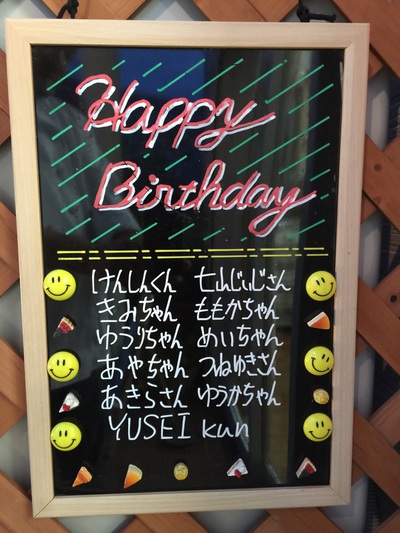 Happy
Birthday
けんしんくん 七山じぃじさん
きみちゃん ももかちゃん
ゆうりちゃん めいちゃん
あやちゃん つねゆきさん
あきらさん ゆうかちゃん
YUSEI kun